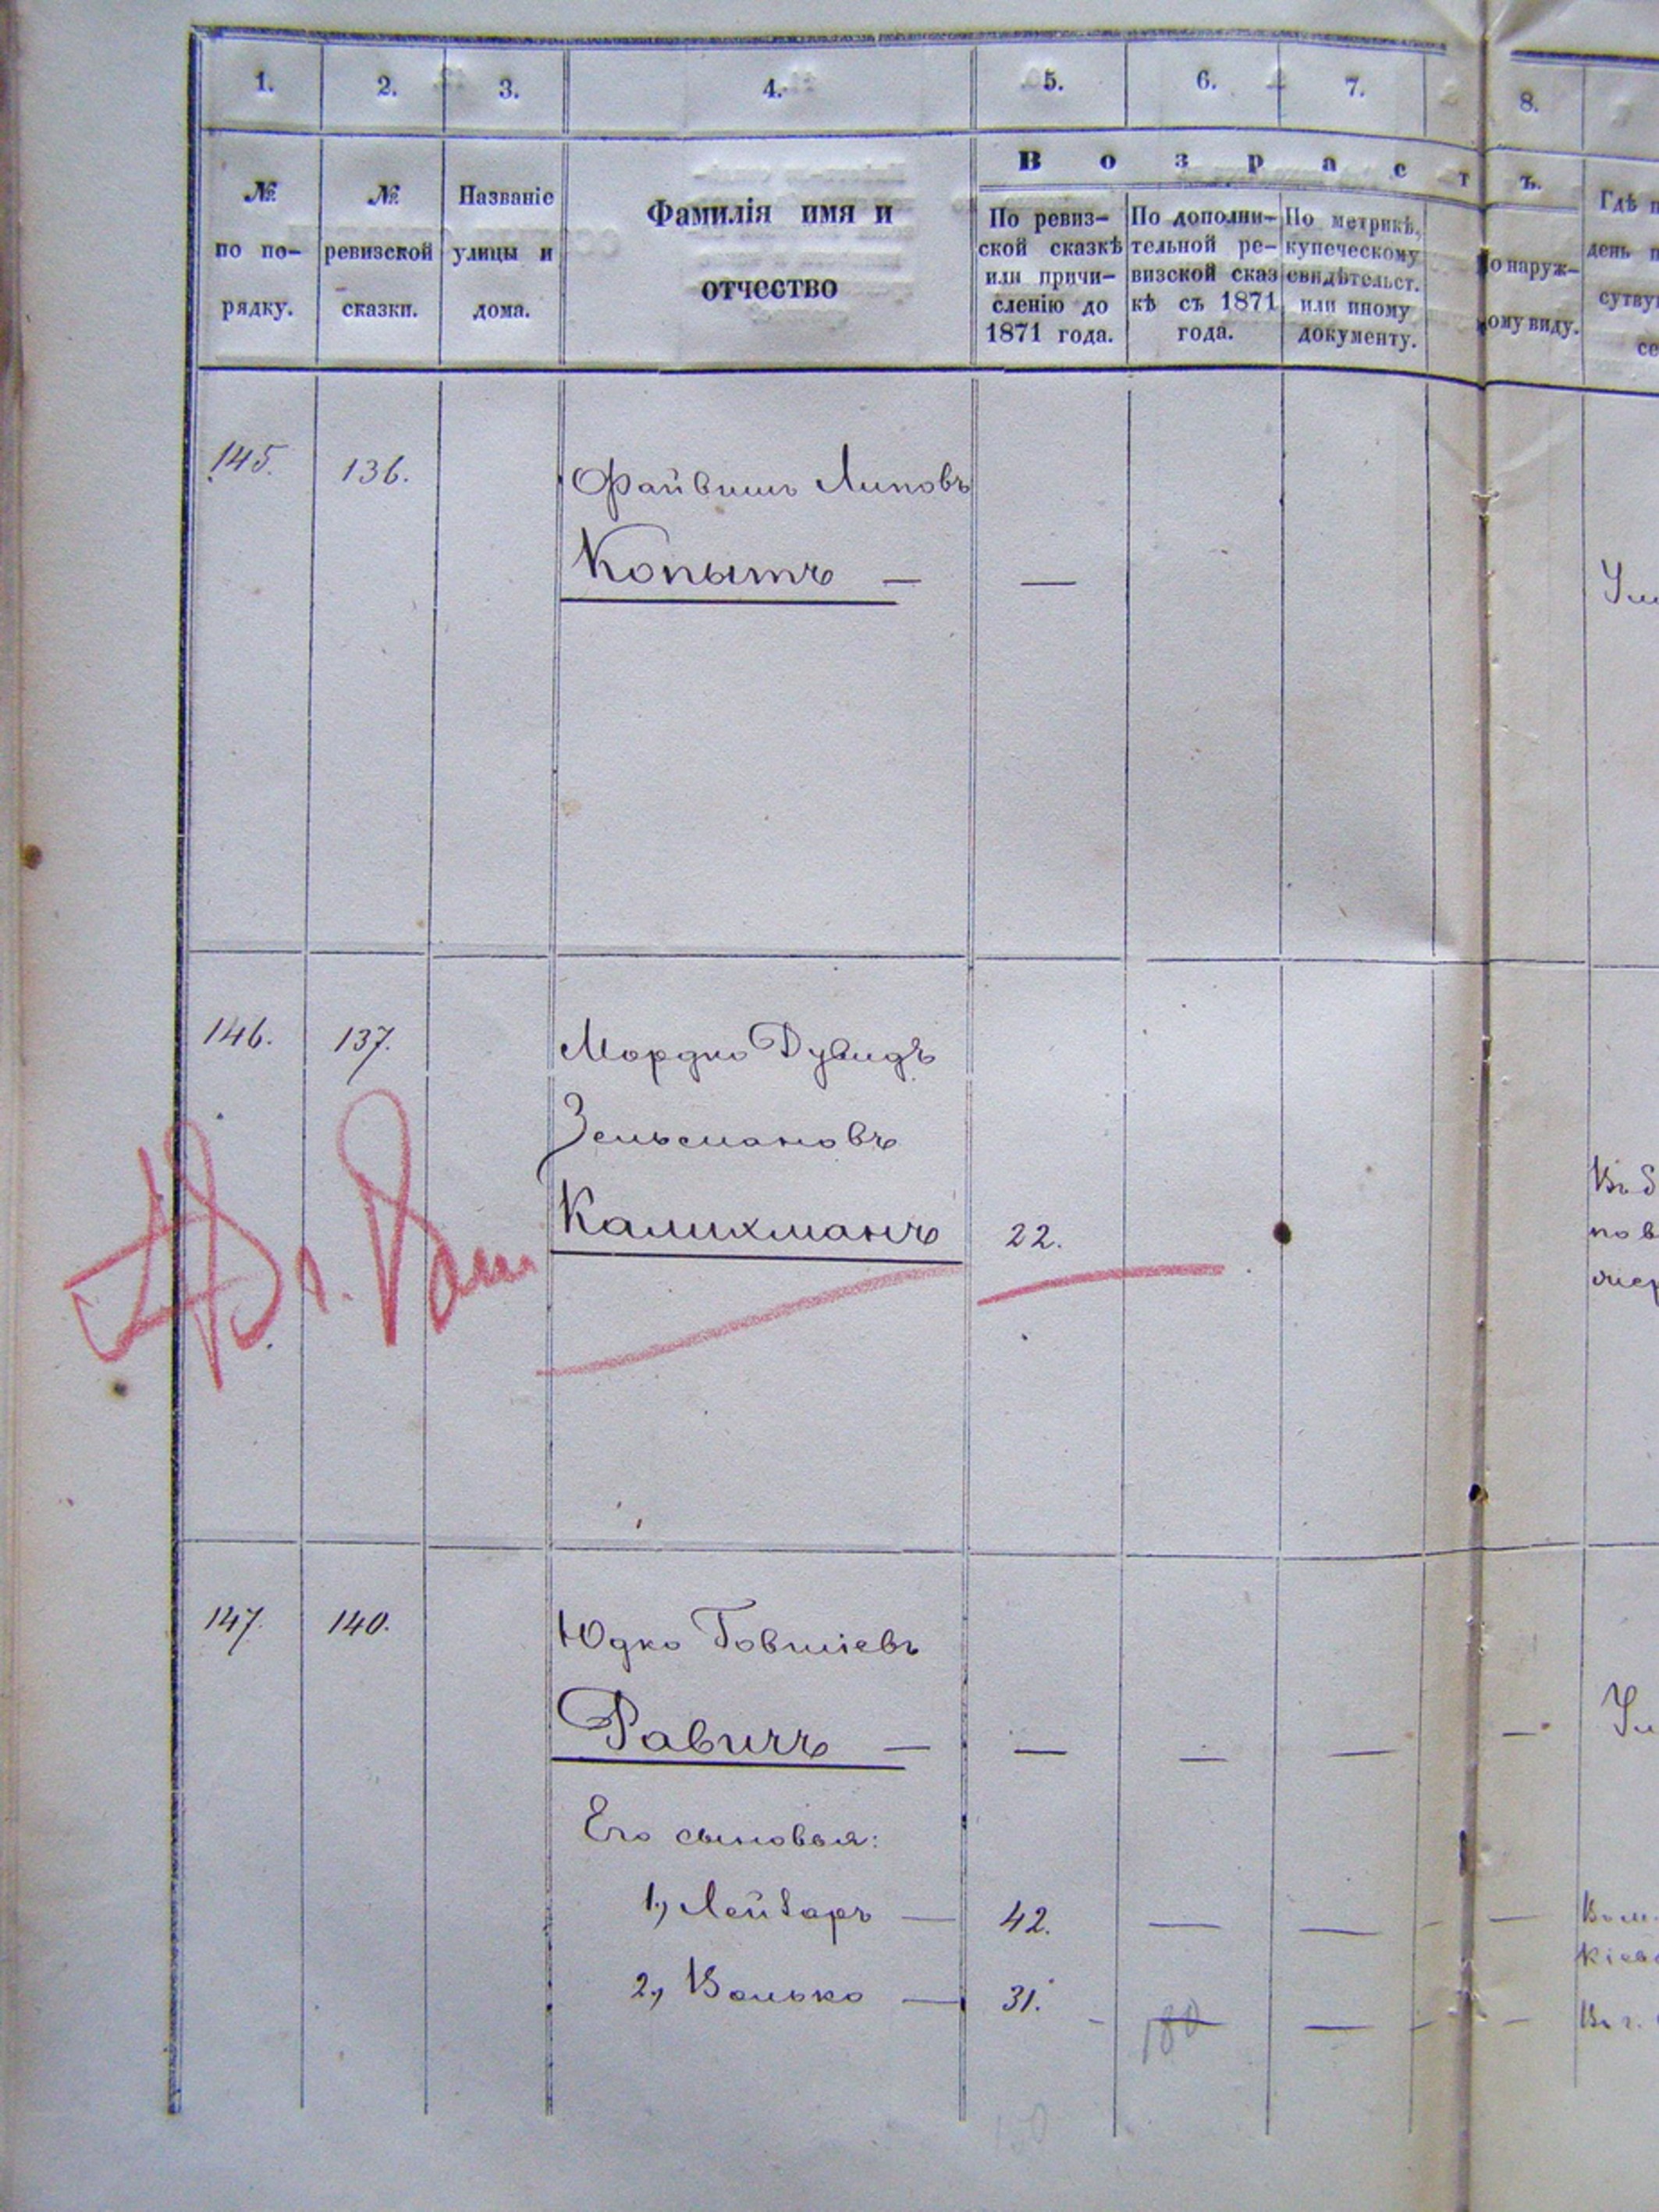 1. 2. 3. 4. 5. 6. 7. 8.
В о з р а с т ъ.
№ по по-
рядку.
№
ревизской
сказки.
Названіе
улицы и
дома.
Фамилія имя и
отчество
По ревиз-
ской сказкѣ
или причи-
сленію до
1871 года.
По дополни-
тельной ре-
визской сказ
кѣ съ 1871
года.
По метрикѣ,
купеческому
свидѣтельст.
или иному
документу.
о наруж-
ому виду.
Гдѣ п
день п
сутву
се
145. 136. Файвишъ Липовъ
Копытъ — —
146. 137. Мордко Дувидъ
Зельмановъ
Калихманъ 22.
Въ
по в
147. 140. Юдко Говшіевъ
Равичъ — — — — —
Его сыновья:
1, Лейзаръ — 42. — — —
Кіев
2, Волько — 31. — — —
180
Въ г.